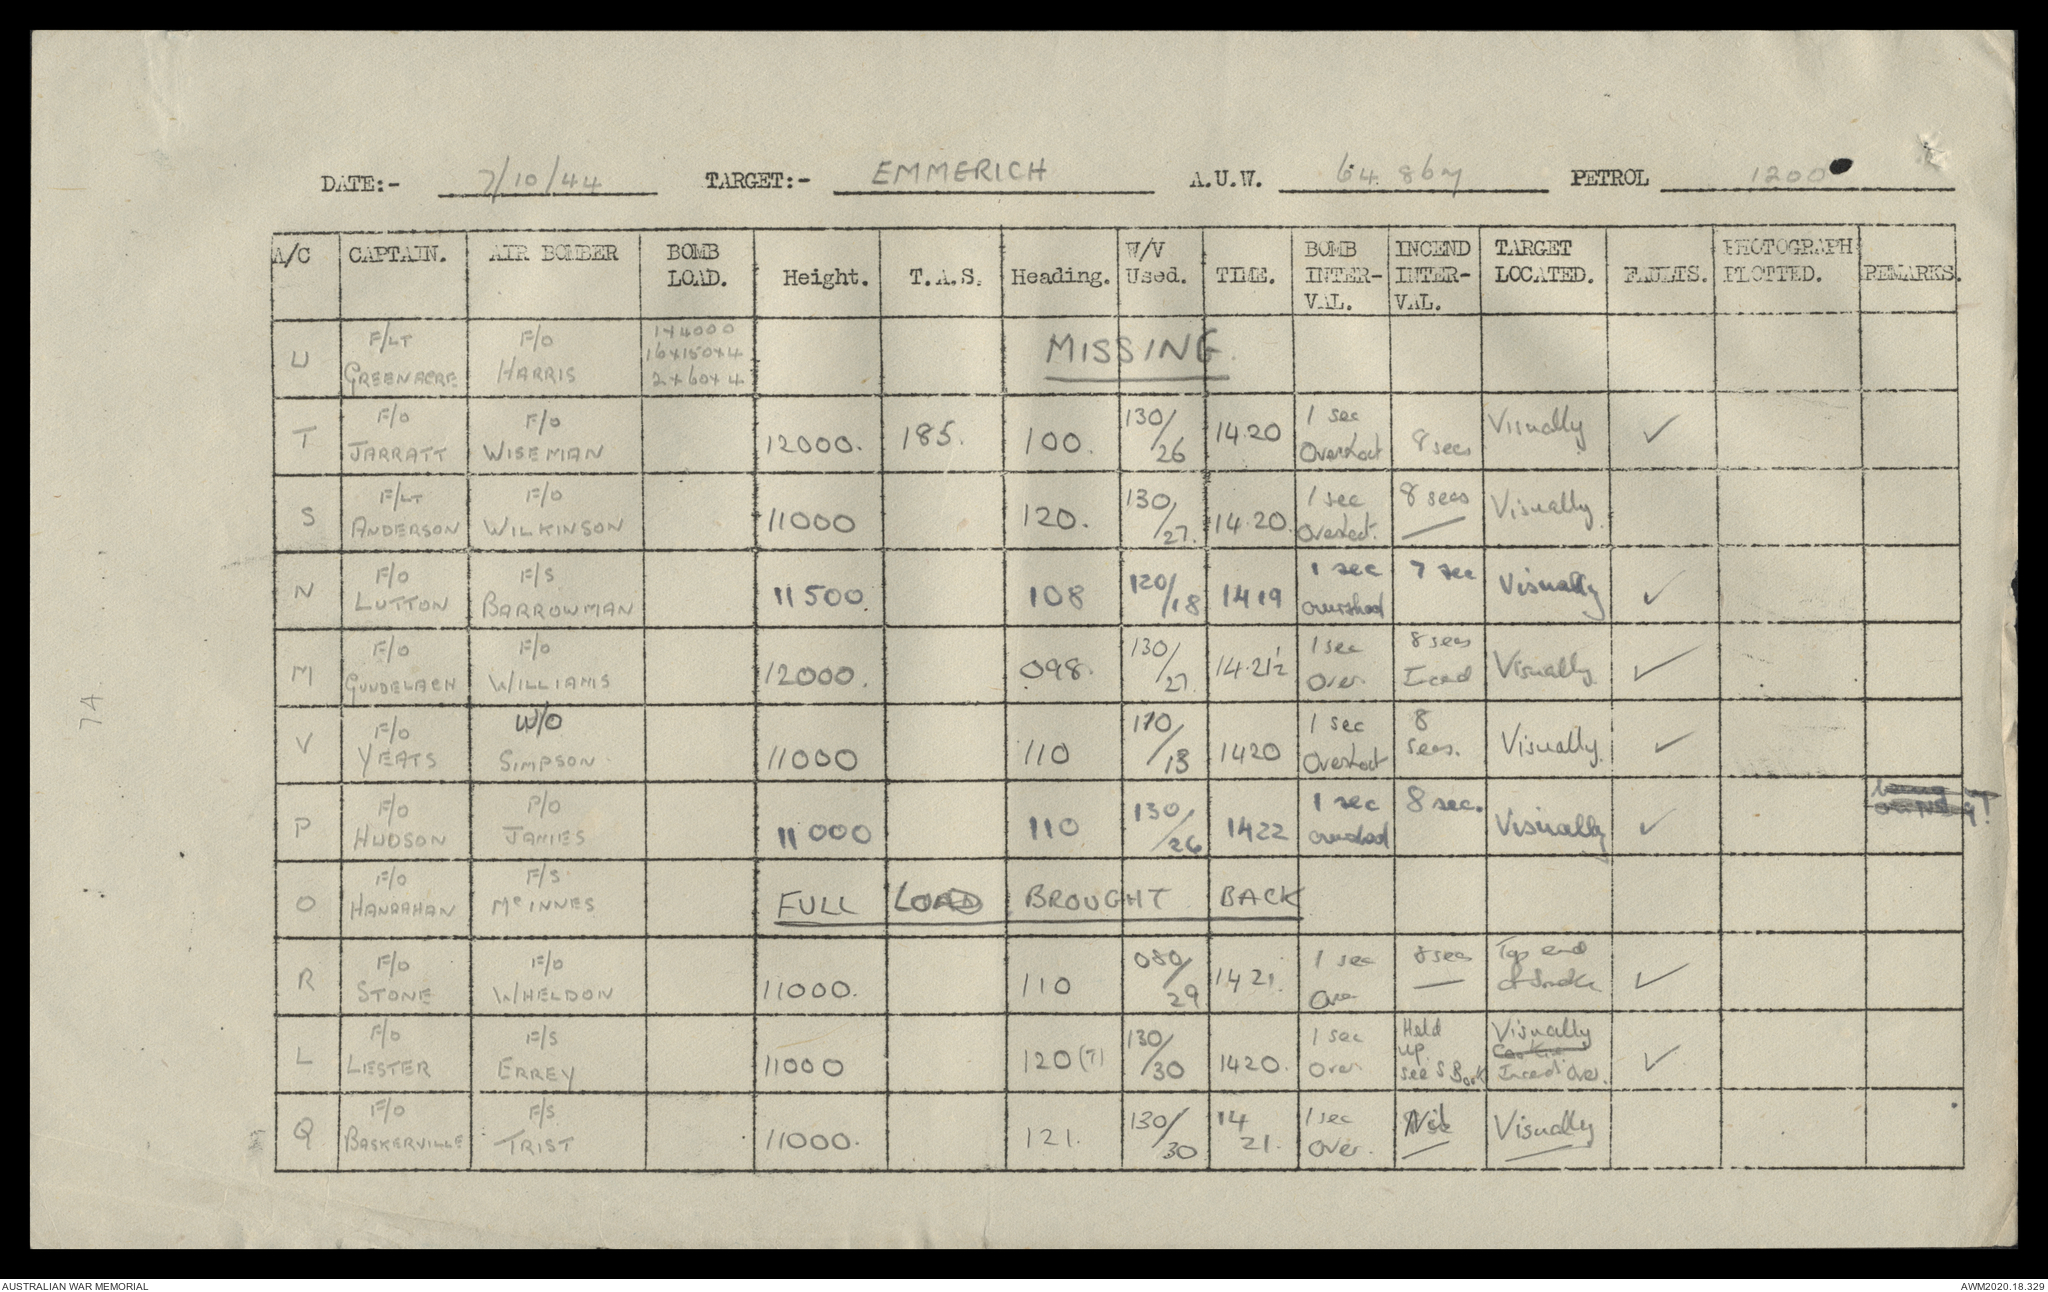 DATE:- 7/10/44 TARGET:- EMMERICH A.U.W. 64 867 PETROL 1200
A/C CAPTAIN. AIR BOMBER BOMB LOAD. Height. T.A.S. Heading. W/V Used. TIME. BOMB INTER-VAL. INCEND INTER-VAL. TARGET LOCATED. FAULTS. PHOTOGRAPH PLOTTED. REMARKS.
U F/LT GREENACRE F/O HARRIS 1x4000 16x150x4 2x60x4 MISSING.
T F/O JARRATT F/O WISEMAN 12000. 185. 100. 130/26 14.20 1 sec Overshoot 8 secs Visually ✓
S F/LT ANDERSON F/O WILKINSON 11000 120. 130/27. 14.20. 1 sec Overshoot. 8 secs Visually.
N F/O LUTTON F/S BARROWMAN 11500. 108 120/18 1419 1 sec overshoot 7 sec Visually ✓
M F/O GUNDELACH F/O WILLIAMS 12000. 098. 130/27 14.21½ 1 sec Over. 8 secs Incend Visually ✓
V F/O YEATS W/O SIMPSON. 11000 110 110/13 1420 1 sec Overshoot 8 secs. Visually. ✓
P F/O HUDSON P/O JAMES 11000 110 130/26 1422 1 sec overshoot 8 sec. Visually ✓
O F/O HANRAHAN F/S. McINNES FULL LOAD BROUGHT BACK
R F/O STONE F/O WHELDON 11000. 110 080/29 1421. 1 sec Over 8 secs Top end of Smoke ✓
L F/O LESTER F/S ERREY 11000 120(T) 130/30 1420. 1 sec Over Held up. see S Book Visually Cookie Incend Over. ✓
Q F/O BASKERVILLE F/S TRIST 11000. 121. 130/30 14 21. 1 sec Over. Nil Visually
7A
AUSTRALIAN WAR MEMORIAL
AWM2020.18.329